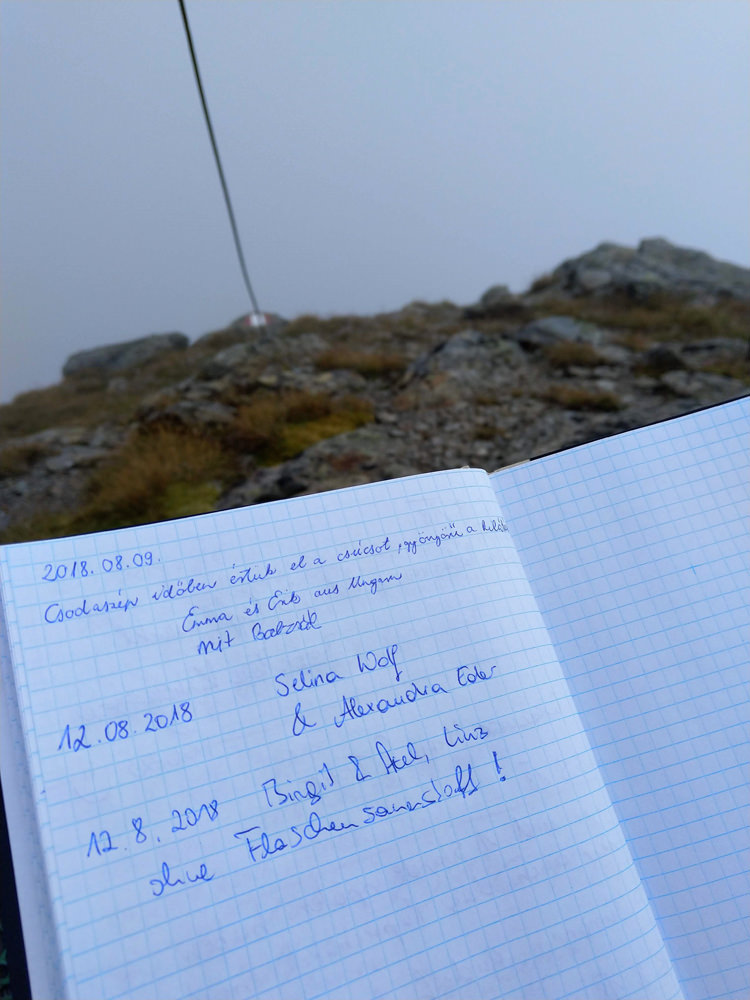 2018.08.09.
Csodaszép időben értük el a csúcsot, gyönyörű a kilátás
Emma és Erik aus Ungarn
mit
12.08.2018 Selina Wolf
& Alexandra Eder
12.8.2018 Birgit & Axel, Linz
ohne Flaschensauerstoff!